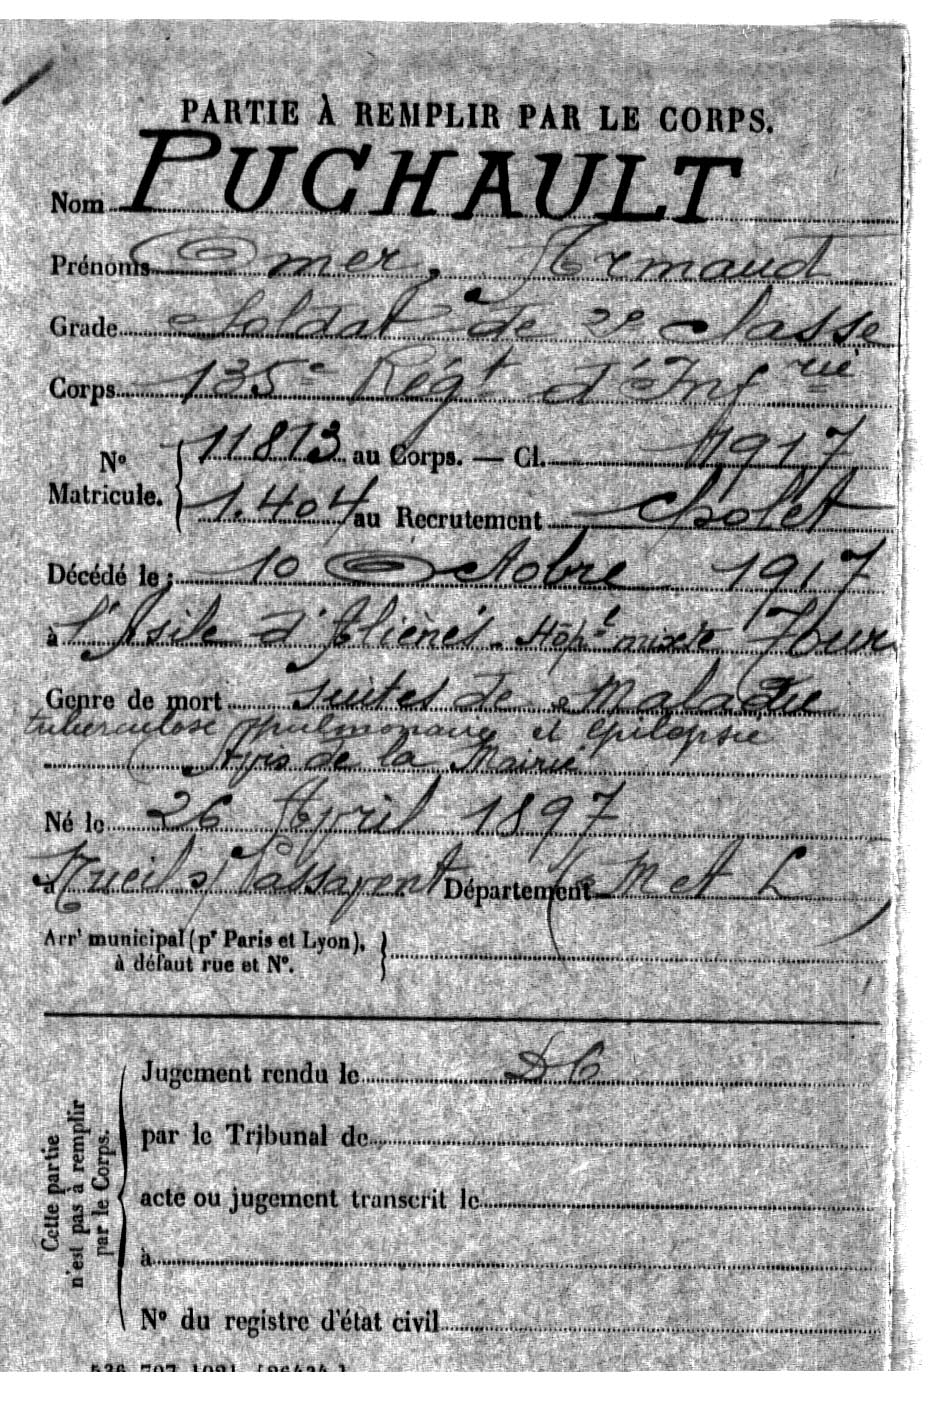 PARTIE À REMPLIR PAR LE CORPS.
Nom PUCHAULT
Prénoms Omer, Armand
Grade Soldat de 2e classe
Corps 135e Régt d'Infrie
No Matricule. 11813 au Corps. — Cl. 1917
1.404 au Recrutement Cholet
Décédé le : 10 Octobre 1917
à l'Asile d'Aliénés. Hôpl mixte Tours
Genre de mort suites de Maladie
tuberculose pulmonaire et épilepsie
Avis de la Mairie
Né le 26 Avril 1897
à Nueil s/ Passavent Département M et L
Arrt municipal (pr Paris et Lyon).
à défaut rue et No.
Cette partie
n'est pas à remplir
par le Corps.
Jugement rendu le
par le Tribunal de
acte ou jugement transcrit le
à
No du registre d'état civil